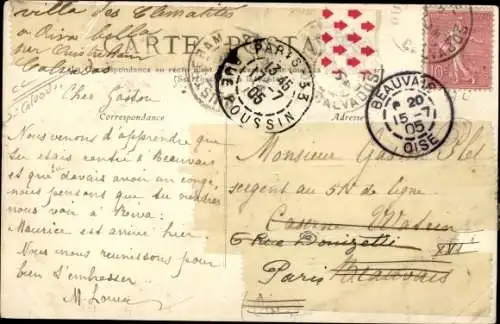 villa des Clématites
Riva bella
par Ouistreham
Calvados
CARTE POSTALE
Correspondance
Adresse
PARIS 33
13 45
7
05
RUE POUSSIN
CALVADOS
BEAUVAIS
20
15-7
05
OISE
10
Cher Gaston
Nous venons d'apprendre que
tu étais rentré à Beauvais
et que devais avoir un congé,
nous pensons que tu viendras
nous voir à Riva.
Maurice est arrivé hier
Nous nous réunissons pour
bien t'embrasser.
M. Louise
Monsieur Gaston
sergent au 51e de ligne
Caserne Watrin
6 Rue Donizetti
XVI
Paris Beauvais
Oise